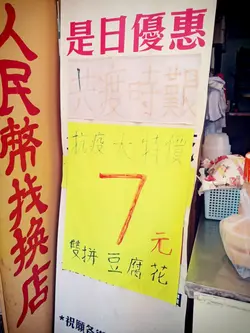 是日優惠
共度時艱
抗疫大特價
7元
雙拼豆腐花
*祝願各
人民幣找換店